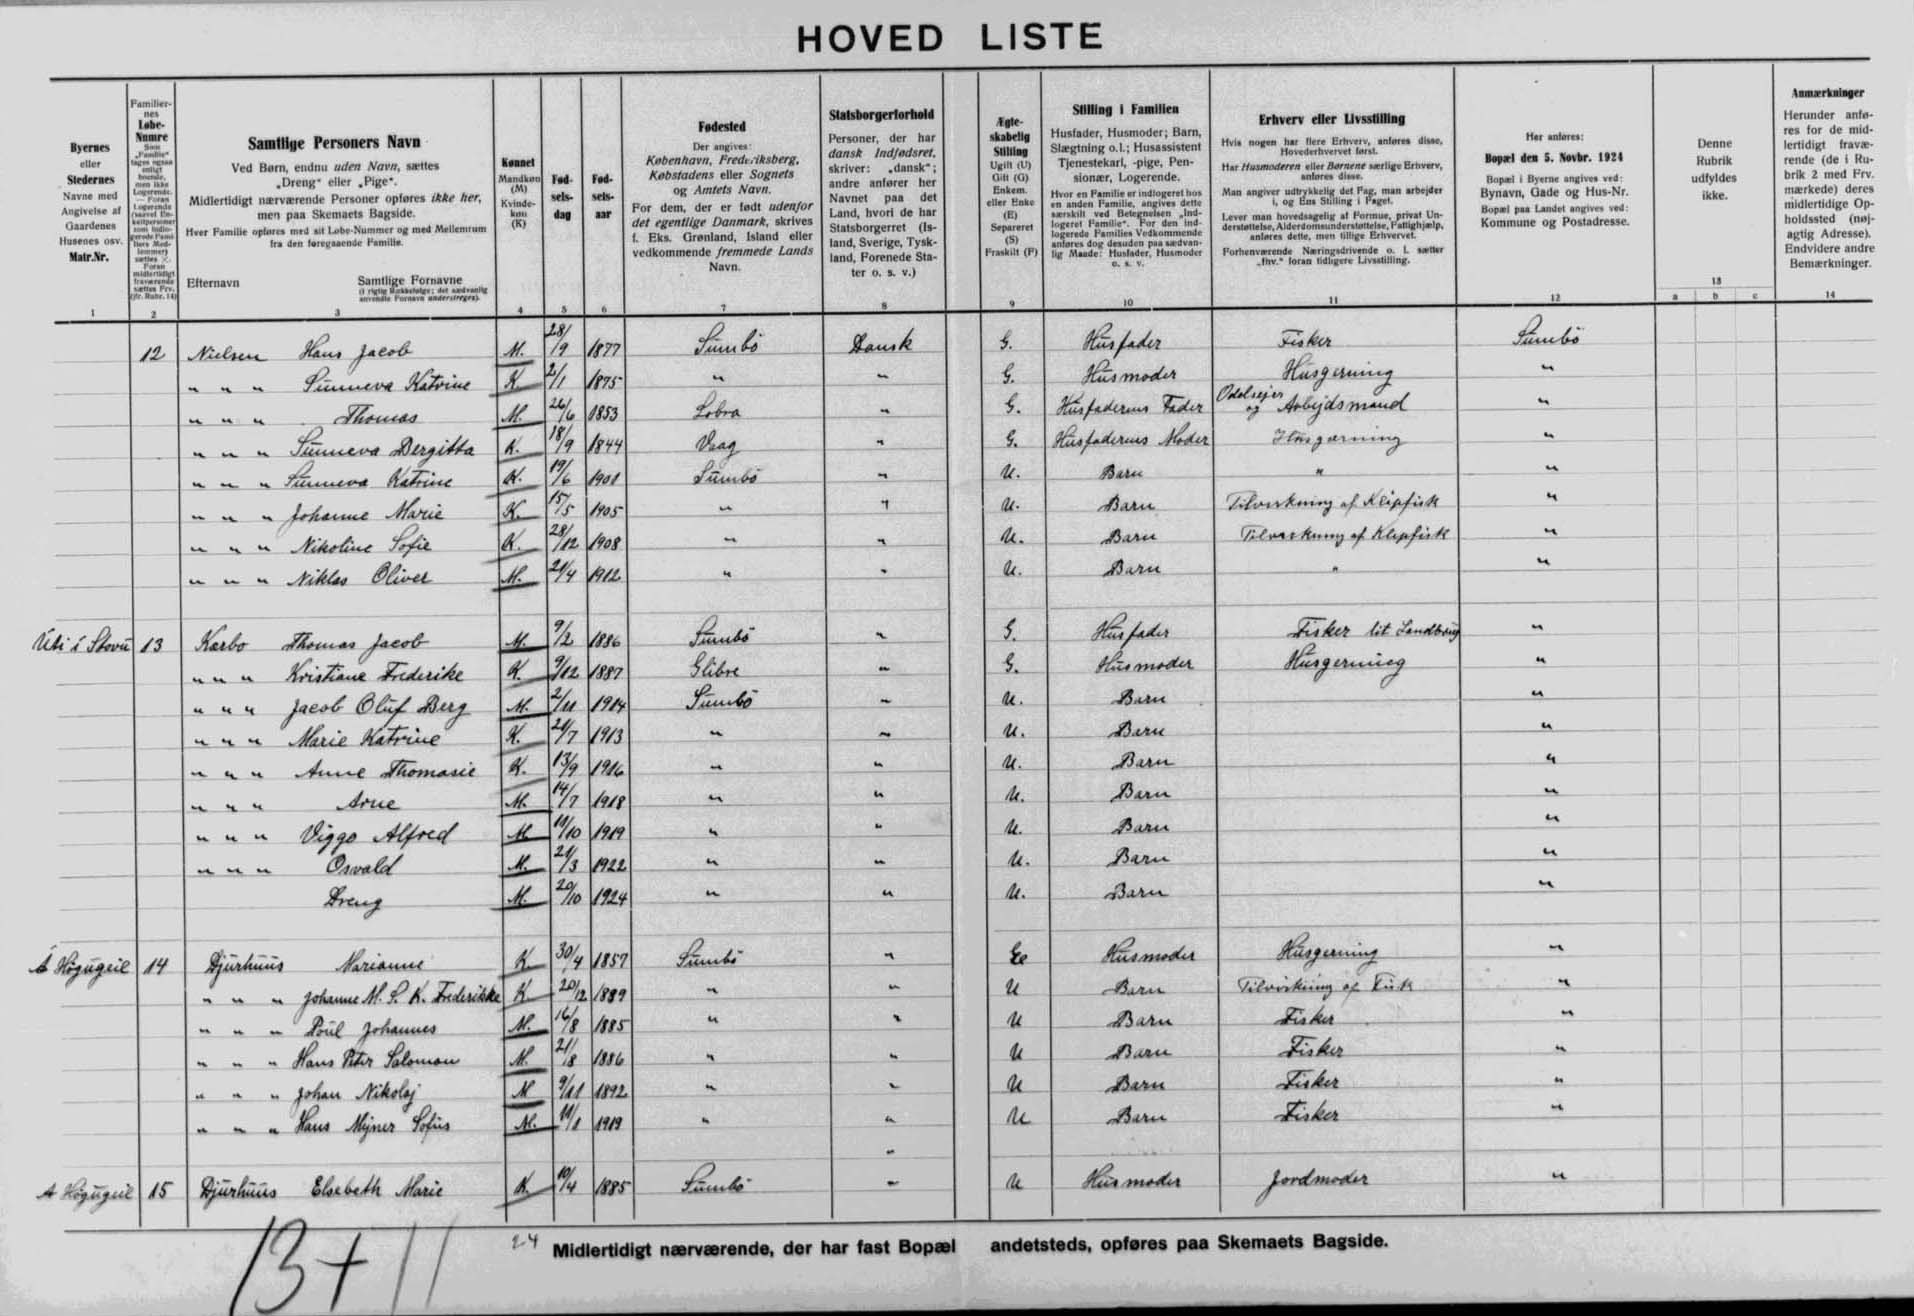 HOVED LISTE
Byernes
eller
Stedernes
Navne med
Angivelse af
Gaardenes
Husenes osv.
Matr.Nr.
1
Familier-
nes
Løbe-
Numre
2
Samtlige Personers Navn
Ved Børn, endnu uden Navn, sættes
„Dreng" eller „Pige".
Midlertidigt nærværende Personer opføres ikke her,
men paa Skemaets Bagside.
Hver Familie opføres med sit Løbe-Nummer og med Mellemrum
fra den foregaaende Familie.
Efternavn Samtlige Fornavne
(i rigtig Rækkefølge; det sædvanlig
anvendte Fornavn understreges).
3
Kønnet
Mandkøn
(M)
Kvinde-
køn
(K)
4
Fød-
sels-
dag
5
Fød-
sels-
aar
6
Fødested
Der angives:
København, Frederiksberg,
Købstadens eller Sognets
og Amtets Navn.
For dem, der er født udenfor
det egentlige Danmark, skrives
f. Eks. Grønland, Island eller
vedkommende fremmede Lands
Navn.
7
Statsborgerforhold
Personer, der har
dansk Indfødsret,
skriver: „dansk";
andre anfører her
Navnet paa det
Land, hvori de har
Statsborgerret (Is-
land, Sverige, Tysk-
land, Forenede Sta-
ter o. s. v.)
8
Ægte-
skabelig
Stilling
Ugift (U)
Gift (G)
Enkem.
eller Enke
(E)
Separeret
(S)
Fraskilt (F)
9
Stilling i Familien
Husfader, Husmoder; Barn,
Slægtning o.l.; Husassistent
Tjenestekarl, -pige, Pen-
sionær, Logerende.
Hvor en Familie er indlogeret hos
en anden Familie, angives dette
særskilt ved Betegnelsen „Ind-
logeret Familie". For den ind-
logerede Families Vedkommende
anføres dog desuden paa sædvan-
lig Maade: Husfader, Husmoder
o. s. v.
10
Erhverv eller Livsstilling
Hvis nogen har flere Erhverv, anføres disse,
Hovederhvervet først.
Har Husmoderen eller Børnene særlige Erhverv,
anføres disse.
Man angiver udtrykkelig det Fag, man arbejder
i, og Ens Stilling i Faget.
Lever man hovedsagelig af Formue, privat Un-
derstøttelse, Alderdomsunderstøttelse, Fattighjælp,
anføres dette, men tillige Erhvervet.
Forhenværende Næringsdrivende o. l. sætter
„fhv." foran tidligere Livsstilling.
11
Her anføres:
Bopæl den 5. Novbr. 1924
Bopæl i Byerne angives ved:
Bynavn, Gade og Hus-Nr.
Bopæl paa Landet angives ved:
Kommune og Postadresse.
12
Denne
Rubrik
udfyldes
ikke.
13
a b c
Anmærkninger
Herunder anfø-
res for de mid-
lertidigt fravæ-
rende (de i Ru-
brik 2 med Frv.
mærkede) deres
midlertidige Op-
holdssted (nøj-
agtig Adresse).
Endvidere andre
Bemærkninger.
14
12 Nielsen Hans Jacob M. 28/9 1877 Sumbö Dansk G. Husfader Fisker Sumbö
" " " Sunneva Katrine K. 2/1 1875 " " G. Husmoder Husgerning "
" " " Thomas M. 26/6 1853 Lobra " G. Husfaderens Fader Odelsejer og Arbejdsmand "
" " " Sunneva Bergitta K. 18/9 1844 Vaag " G. Husfaderens Moder Husgerning "
" " " Sunneva Katrine K. 19/6 1901 Sumbö " U. Barn " "
" " " Johanne Marie K. 15/5 1905 " " U. Barn Tilvirkning af Klipfisk "
" " " Nikoline Sofie K. 28/12 1908 " " U. Barn Tilvirkning af Klipfisk "
" " " Niklas Oliver M. 21/4 1912 " " U. Barn " "
Úti í Stovu 13 Kærbo Thomas Jacob M. 9/2 1886 Sumbö " G. Husfader Fisker lit Landbrug "
" " " Kristiane Frederike K. 9/12 1887 Glibre " G. Husmoder Husgerning "
" " " Jacob Oluf Berg M. 2/11 1914 Sumbö " U. Barn "
" " " Marie Katrine K. 21/7 1913 " " U. Barn "
" " " Anne Thomasie K. 13/9 1916 " " U. Barn "
" " " Arne M. 14/7 1918 " " U. Barn "
" " " Viggo Alfred M. 11/10 1919 " " U. Barn "
" " " Osvald M. 21/3 1922 " " U. Barn "
Dreng M. 20/10 1924 " " U. Barn "
Á Høgugeil 14 Djurhuus Marianne K. 30/4 1857 " Sumbö " Husmoder Husgerning "
" " " Johanne M. S. K. Frederikke K. 20/12 1889 " " U Barn Tilvirkning af Fisk "
" " " Poul Johannes M. 16/8 1885 " " U Barn Fisker "
" " " Hans Peter Salomon M. 21/8 1886 " " U Barn Fisker "
" " " Johan Nikolaj M 9/11 1892 " " U Barn Fisker "
" " " Hans Mejner Sofus M. 11/1 1919 " " U Barn Fisker "
"
A Høgugeil 15 Djurhuus Elsebeth Marie K. 10/4 1885 Sumbö " U Husmoder Jordmoder "
13+11 24 Midlertidigt nærværende, der har fast Bopæl andetsteds, opføres paa Skemaets Bagside.